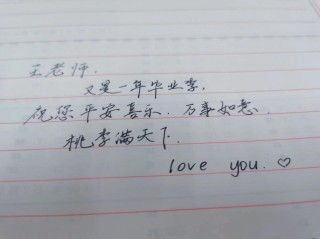 王老师.
又是一年毕业季.
祝您平安喜乐.万事如意.
桃李满天下.
love you.♡